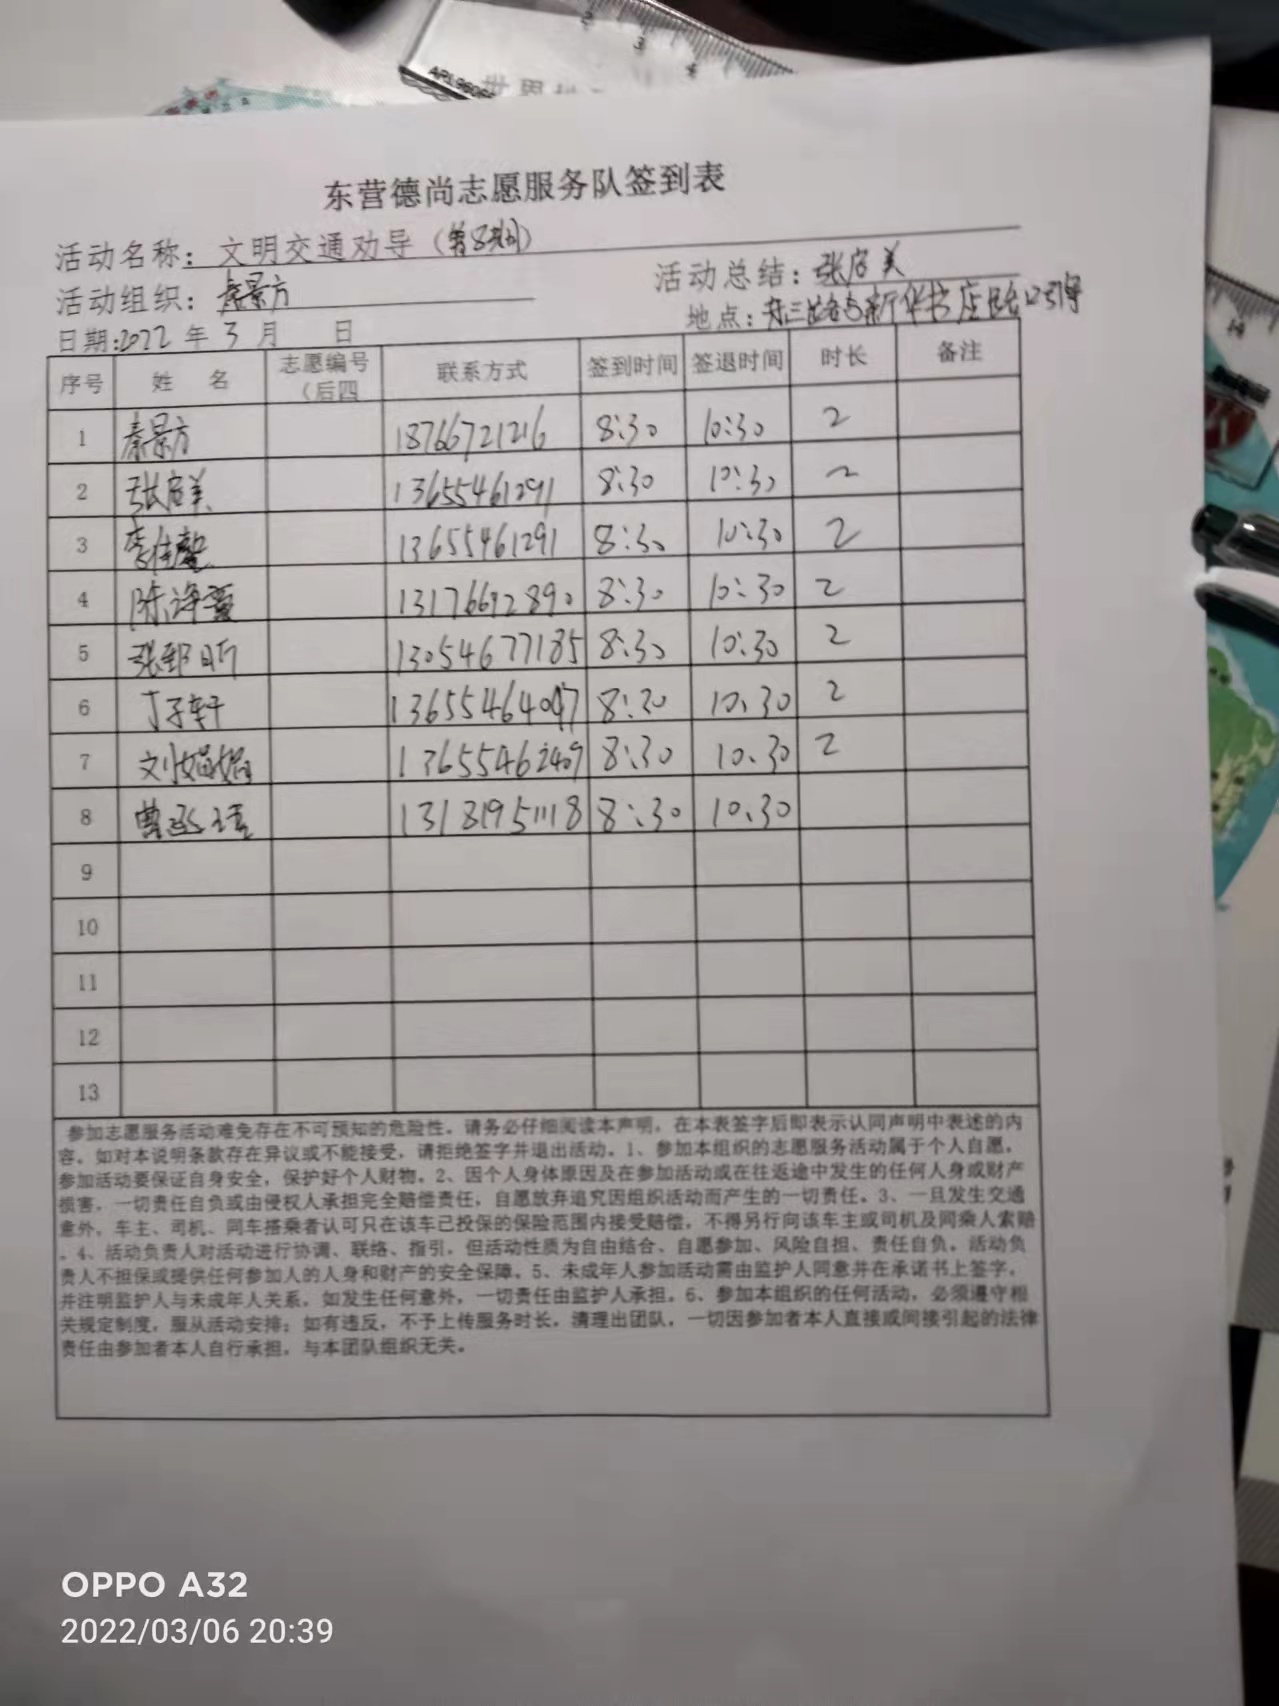 东营德尚志愿服务队签到表
活动名称：文明交通劝导（第8期）
活动组织：秦景方 活动总结：张启美
日期:2022 年 3 月 日 地点：东三路与新华书店路口引导
序号 姓 名 志愿编号（后四 联系方式 签到时间 签退时间 时长 备注
1 秦景方 18766721216 8:30 10:30 2
2 张启美 13655461291 8:30 10:30 2
3 李佳馨 13655461291 8:30 10:30 2
4 陈 13176692890 8:30 10:30 2
5 张郅昕 13054677185 8:30 10:30 2
6 丁子轩 13655464097 8:30 10.30 2
7 刘娟娟 13655462409 8:30 10.30 2
8 曹 13181951118 8:30 10.30
9
10
11
12
13
参加志愿服务活动难免存在不可预知的危险性。请务必仔细阅读本声明，在本表签字后即表示认同声明中表述的内
容。如对本说明条款存在异议或不能接受，请拒绝签字并退出活动。1、参加本组织的志愿服务活动属于个人自愿，
参加活动要保证自身安全，保护好个人财物。2、因个人身体原因及在参加活动或在往返途中发生的任何人身或财产
损害，一切责任自负或由侵权人承担完全赔偿责任，自愿放弃追究因组织活动而产生的一切责任。3、一旦发生交通
意外，车主、司机、同车搭乘者认可只在该车已投保的保险范围内接受赔偿，不得另行向该车主或司机及同乘人索赔
。4、活动负责人对活动进行协调、联络、指引，但活动性质为自由结合、自愿参加、风险自担、责任自负。活动负
责人不担保或提供任何参加人的人身和财产的安全保障。5、未成年人参加活动需由监护人同意并在承诺书上签字，
并注明监护人与未成年人关系，如发生任何意外，一切责任由监护人承担。6、参加本组织的任何活动，必须遵守相
关规定制度，服从活动安排；如有违反，不予上传服务时长，清理出团队，一切因参加者本人直接或间接引起的法律
责任由参加者本人自行承担，与本团队组织无关。
OPPO A32
2022/03/06 20:39